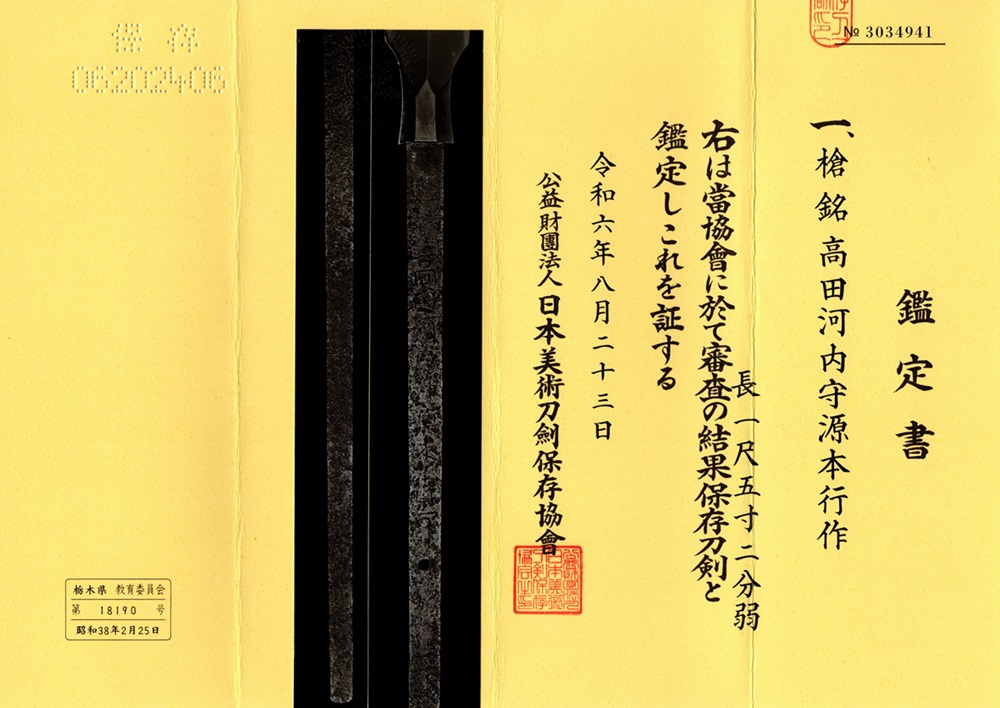 № 3034941
鑑定書
一、槍 銘 高田河内守源本行作
長一尺五寸二分弱
右は當協會に於て審査の結果保存刀剣と
鑑定しこれを証する
令和六年八月二十三日
公益財團法人 日本美術刀劍保存協會
保存
06202406
栃木県 教育委員会
第 18190 号
昭和38年2月25日